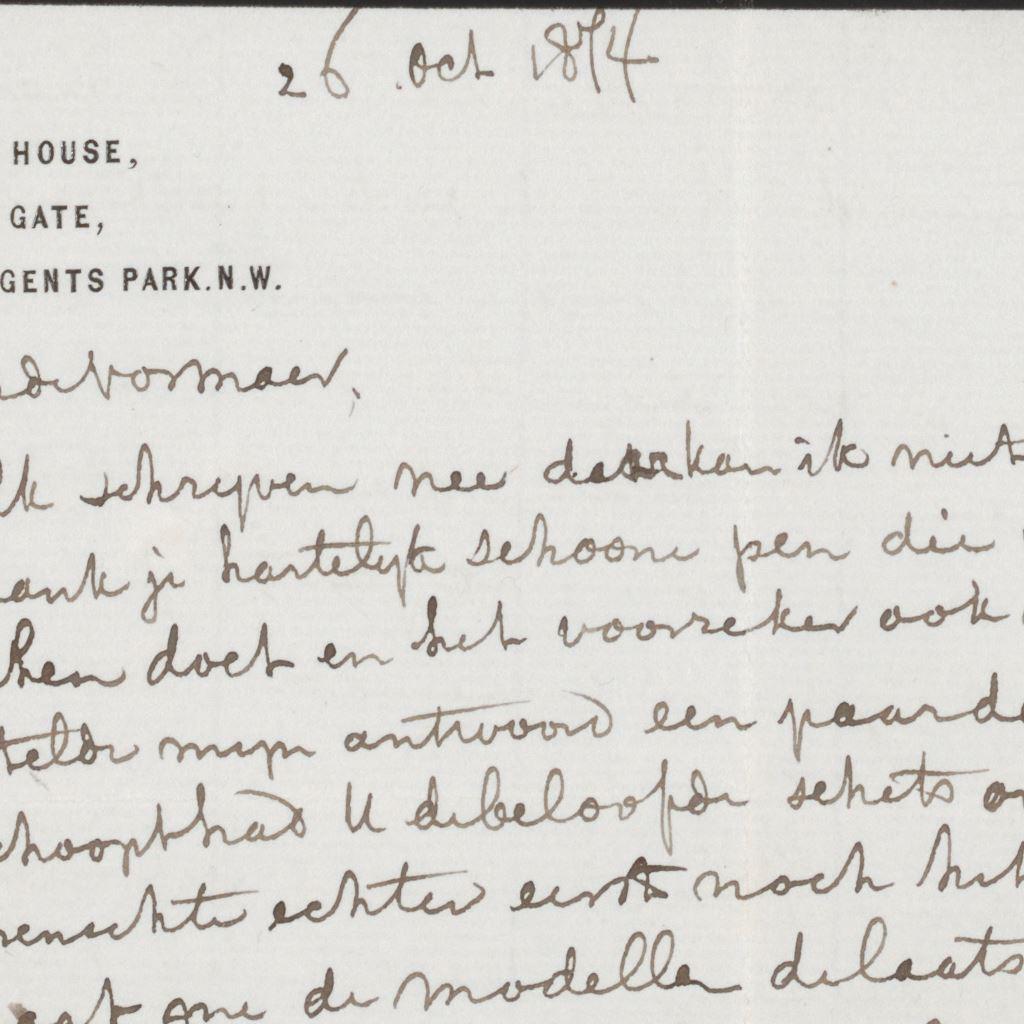 26 Oct 1874
HOUSE,
GATE,
GENTS PARK. N.W.
Vosmaer,
Ik schryven nee daar kan ik niet
ank je hartelyk schoone pen die
hen doet en het voorzeker ook
telde myn antwoord een paarde
hoopt had U de beloofde schets
wenschte echter eerst noch het
me de modellen de laats